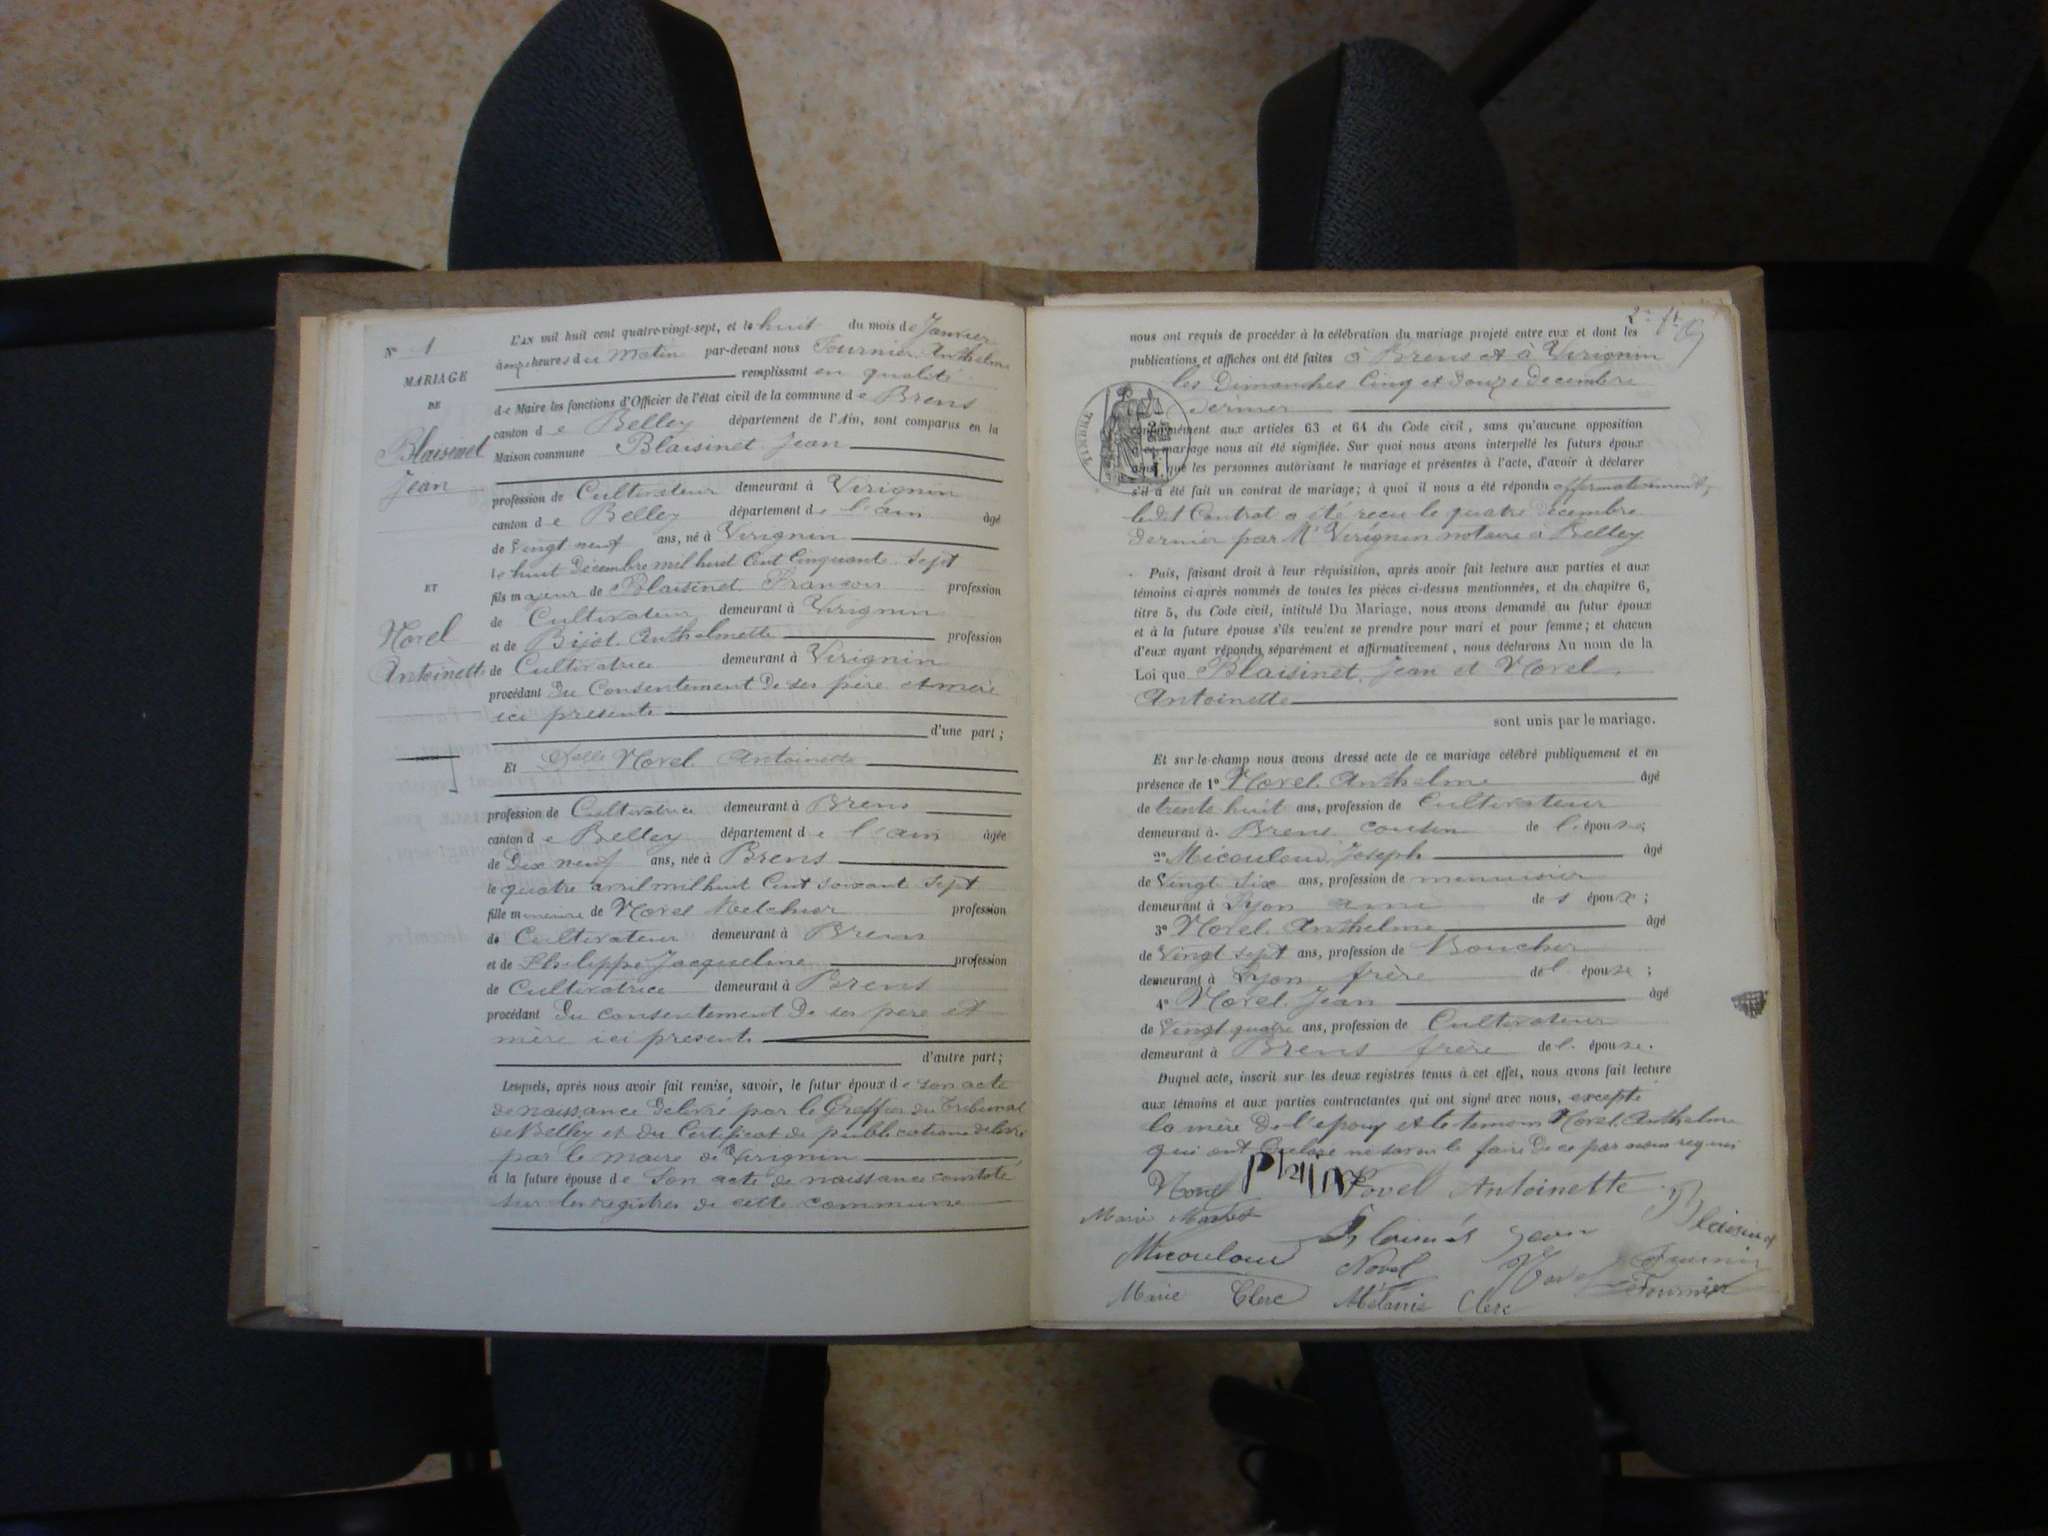 N° 1
MARIAGE
DE
Blaisinet
Jean
ET
Morel
Antoinette
L'AN mil huit cent quatre-vingt-sept, et le huit du mois de Janvier
à onze heures du Matin par-devant nous Fournier Anthelme
remplissant en qualité
de Maire les fonctions d'Officier de l'état civil de la commune de Brens
canton de Belley département de l'Ain, sont comparus en la
Maison commune Blaisinet Jean
profession de Cultivateur demeurant à Virignin
canton de Belley département de l'ain âgé
de Vingt neuf ans, né à Virignin
le huit Décembre mil huit Cent Cinquante Sept
fils majeur de Blaisinet François profession
de Cultivateur demeurant à Virignin
et de Bijot Anthelmette profession
de Cultivatrice demeurant à Virignin
procédant Du Consentement De ses père et mère
ici présents
d'une part ;
Et Delle Morel Antoinette
profession de Cultivatrice demeurant à Brens
canton de Belley département de l'ain âgée
de Dix neuf ans, née à Brens
le quatre avril mil huit Cent soixant Sept
fille mineure de Morel Melchior profession
de Cultivateur demeurant à Brens
et de Philippe Jacqueline profession
de Cultivatrice demeurant à Brens
procédant Du consentement De ses père et
mère ici présents
d'autre part ;
Lesquels, après nous avoir fait remise, savoir, le futur époux de son acte
de naissance délivré par le Greffier du Tribunal
de Belley et du Certificat de publications délivré
par le maire de Virignin
et la future épouse de Son acte de naissance constaté
sur les registres de cette commune
nous ont requis de procéder à la célébration du mariage projeté entre eux et dont les
publications et affiches ont été faites à Brens et à Virignin
les Dimanches Cinq et Douze Décembre
Dernier
TIMBRE
conformément aux articles 63 et 64 du Code civil, sans qu'aucune opposition
à ce mariage nous ait été signifiée. Sur quoi nous avons interpellé les futurs époux
ainsi que les personnes autorisant le mariage et présentes à l'acte, d'avoir à déclarer
s'il a été fait un contrat de mariage ; à quoi il nous a été répondu affirmativement,
ledit Contrat a été reçu le quatre décembre
dernier par Me Virignin notaire à Belley
Puis, faisant droit à leur réquisition, après avoir fait lecture aux parties et aux
témoins ci-après nommés de toutes les pièces ci-dessus mentionnées, et du chapitre 6,
titre 5, du Code civil, intitulé Du Mariage, nous avons demandé au futur époux
et à la future épouse s'ils veulent se prendre pour mari et pour femme ; et chacun
d'eux ayant répondu séparément et affirmativement, nous déclarons Au nom de la
Loi que Blaisinet, Jean et Morel,
Antoinette
sont unis par le mariage.
Et sur-le-champ nous avons dressé acte de ce mariage célébré publiquement et en
présence de 1° Morel Anthelme âgé
de trente huit ans, profession de Cultivateur
demeurant à Brens cousin de l'épouse ;
2° Micouloud Joseph âgé
de Vingt Six ans, profession de menuisier
demeurant à Lyon ami des époux ;
3° Morel Anthelme âgé
de Vingt sept ans, profession de Boucher
demeurant à Lyon frère de l'épouse ;
4° Morel Jean âgé
de Vingt quatre ans, profession de Cultivateur
demeurant à Brens frère de l'épouse.
Duquel acte, inscrit sur les deux registres tenus à cet effet, nous avons fait lecture
aux témoins et aux parties contractantes qui ont signé avec nous, excepté
la mère de l'époux et le témoin Morel Anthelme
qui ont Déclaré ne savoir le faire De ce par nous requis
Morel Morel Antoinette
Marie Blaisinet
Micouloud Jean
Morel Morel Fournier
Marie Clerc Mélanie Clerc